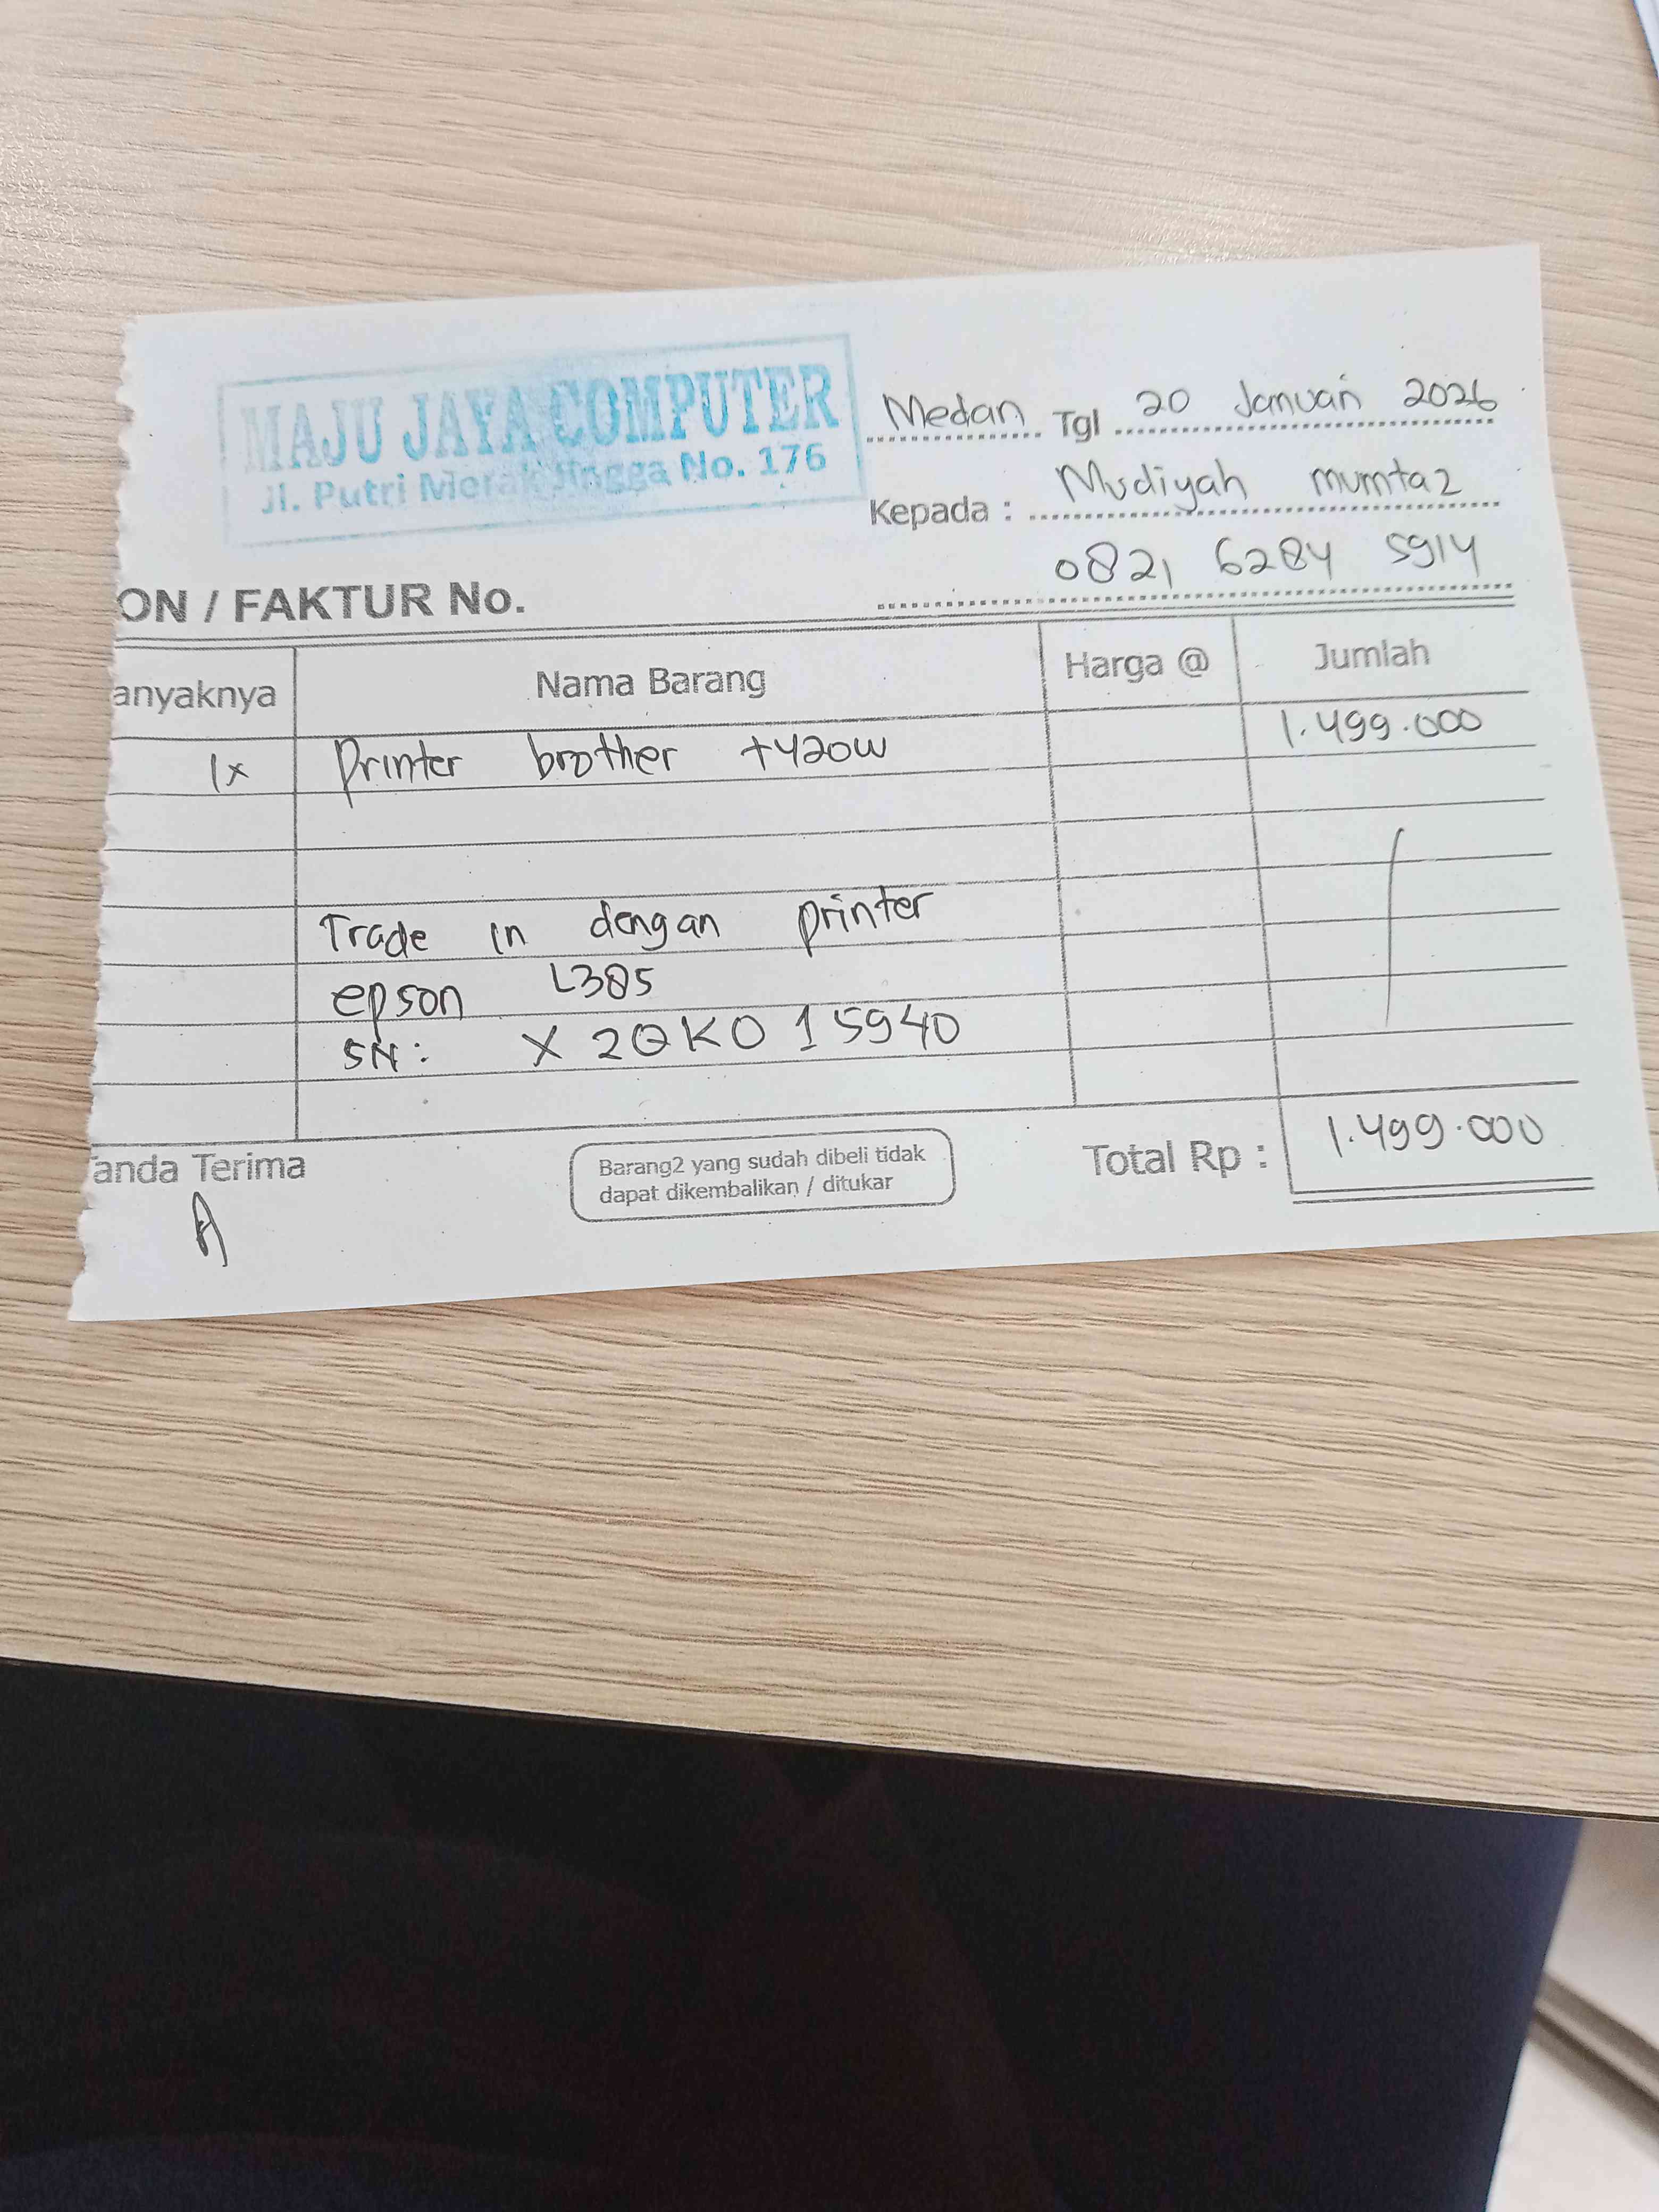 MAJU JAYA COMPUTER
Jl. Putri Merak Jingga No. 176
Medan Tgl 20 Januari 2026
Kepada : Mudiyah mumtaz
0821 6284 5914
ON / FAKTUR No.
anyaknya Nama Barang Harga @ Jumlah
1x Printer brother t420w 1.499.000
Trade in dengan printer
epson L385
SN: X2QK015940
anda Terima
Barang2 yang sudah dibeli tidak
dapat dikembalikan / ditukar
Total Rp : 1.499.000